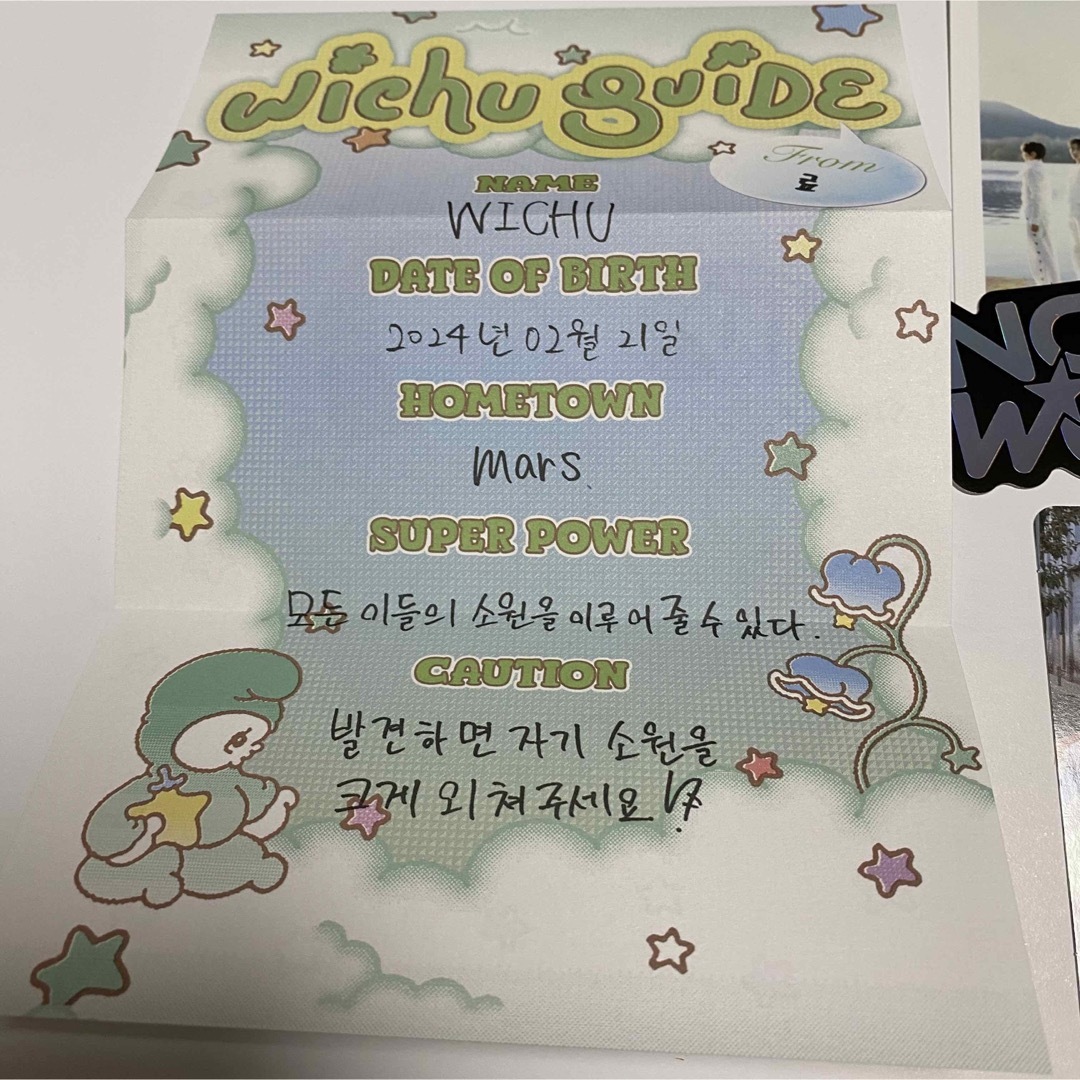 wichu guiDE
From
료
NAME
WICHU
DATE OF BIRTH
2024년 02월 21일
HOMETOWN
Mars.
SUPER POWER
모든 이들의 소원을 이루어 줄 수 있다.
CAUTION
발견하면 자기 소원을
크게 외쳐주세요!